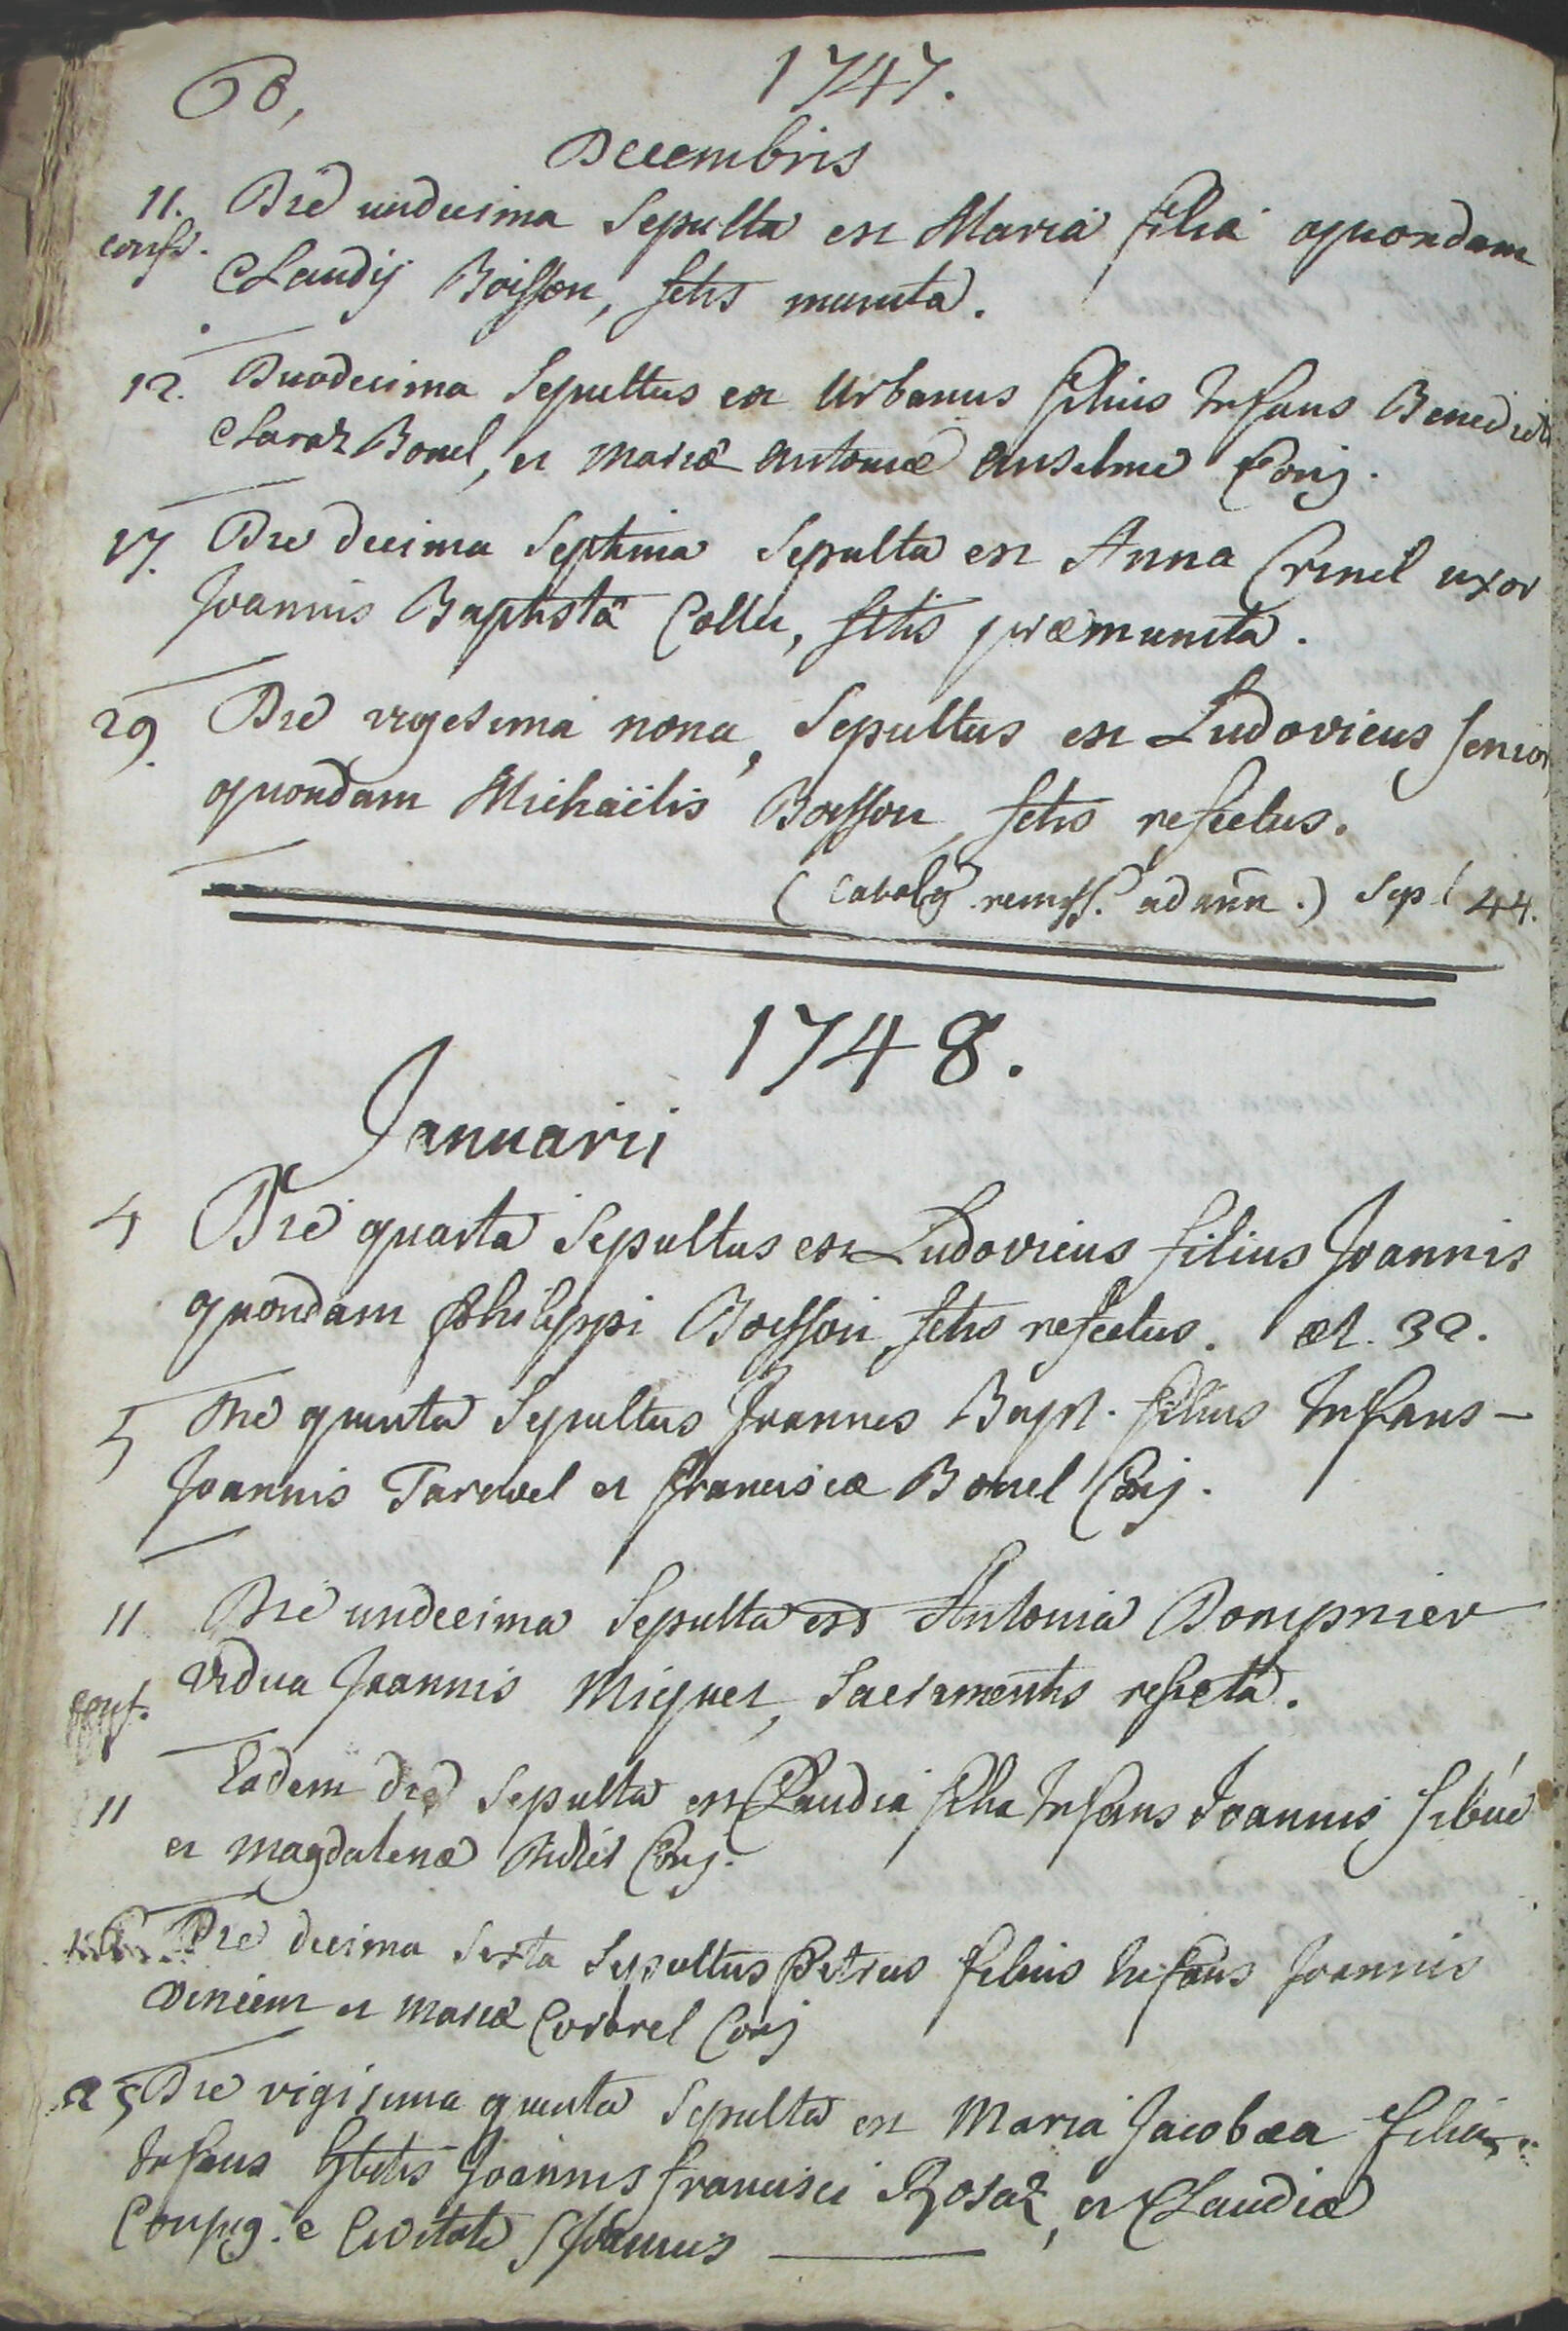 68,
1747.
Decembris
11. Die undecima Sepulta est Maria filia quondam
conf. Claudij Boisson, sctis munita.
12. Duodecima Sepultus est Urbanus filius Infans Benedicti
Claraz Bonel, et mariæ antoniæ anselme Conj.
17. Die decima Septima Sepulta est Anna Crinel uxor
Joannis Baptista Collet, sctis præmunita.
29. Die vigesima nona, Sepultus est Ludovicus senior
quondam Michaëlis Boisson, sctis refectus.
( remiss. ad ann.) Sep. 44.
1748.
Januarii
4 Die quarta Sepultus est Ludovicus filius Joannis
quondam Philippi Boisson, sctis refectus. æt. 32.
5 Die quinta Sepultus Joannes Bapt. filius Infans -
Joannis Taravel et franciscæ Bonel Conj.
11 Die undecima Sepulta est Antonia Dompnier
conf. vidua Joannis Miquet, Sacramentis refecta.
11 Eadem die Sepulta est Claudia filia Infans Joannis
et magdalenæ Conj.
16 Die decima Sexta Sepultus Petrus filius Infans Joannis
et mariæ Conj
25 Die vigesima quinta Sepulta est Maria Jacobæa filia
Infans Joannis francisci Rosaz, et Claudiæ
Conjug. e Civitate